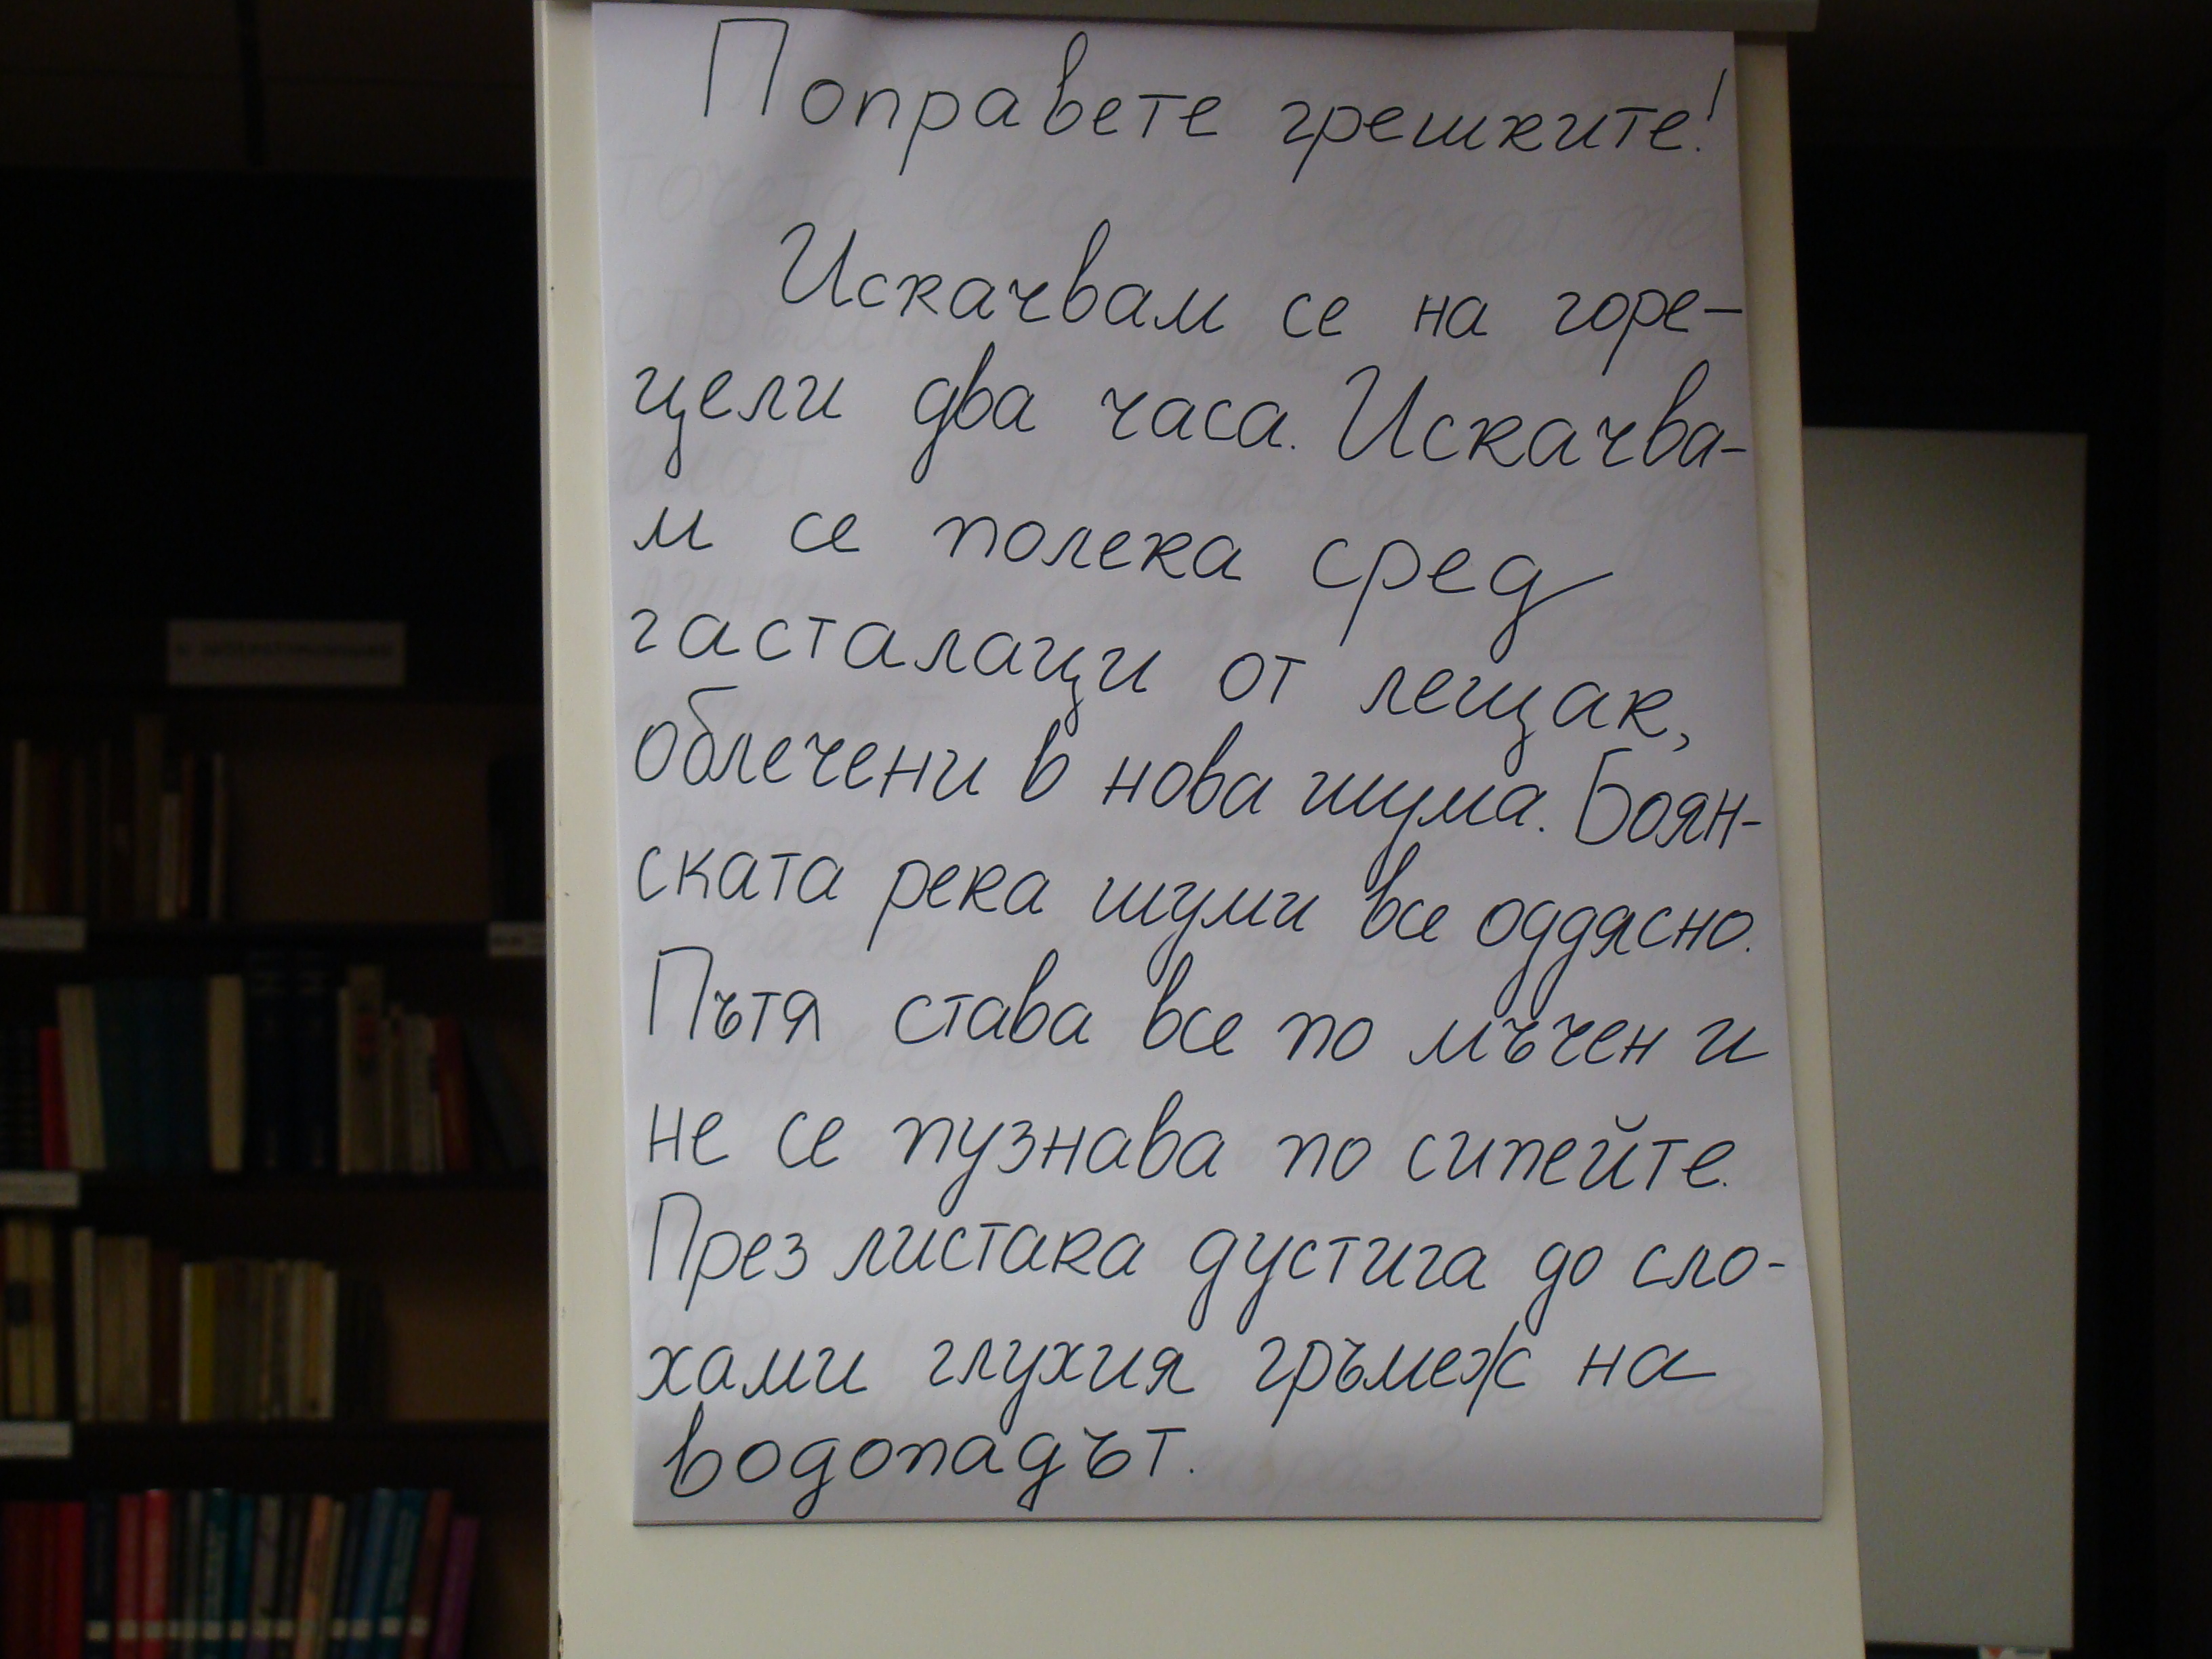 Поправете грешките!
Искачвам се на горе-
цели два часа. Искачва-
м се полека сред
гасталаци от лещак,
облечени в нова шума. Боян-
ската река шуми все оддясно.
Пътя става все по мъчен и
не се пузнава по сипейте.
През листака дустига до сло-
хами глухия гръмеж на
водопадът.